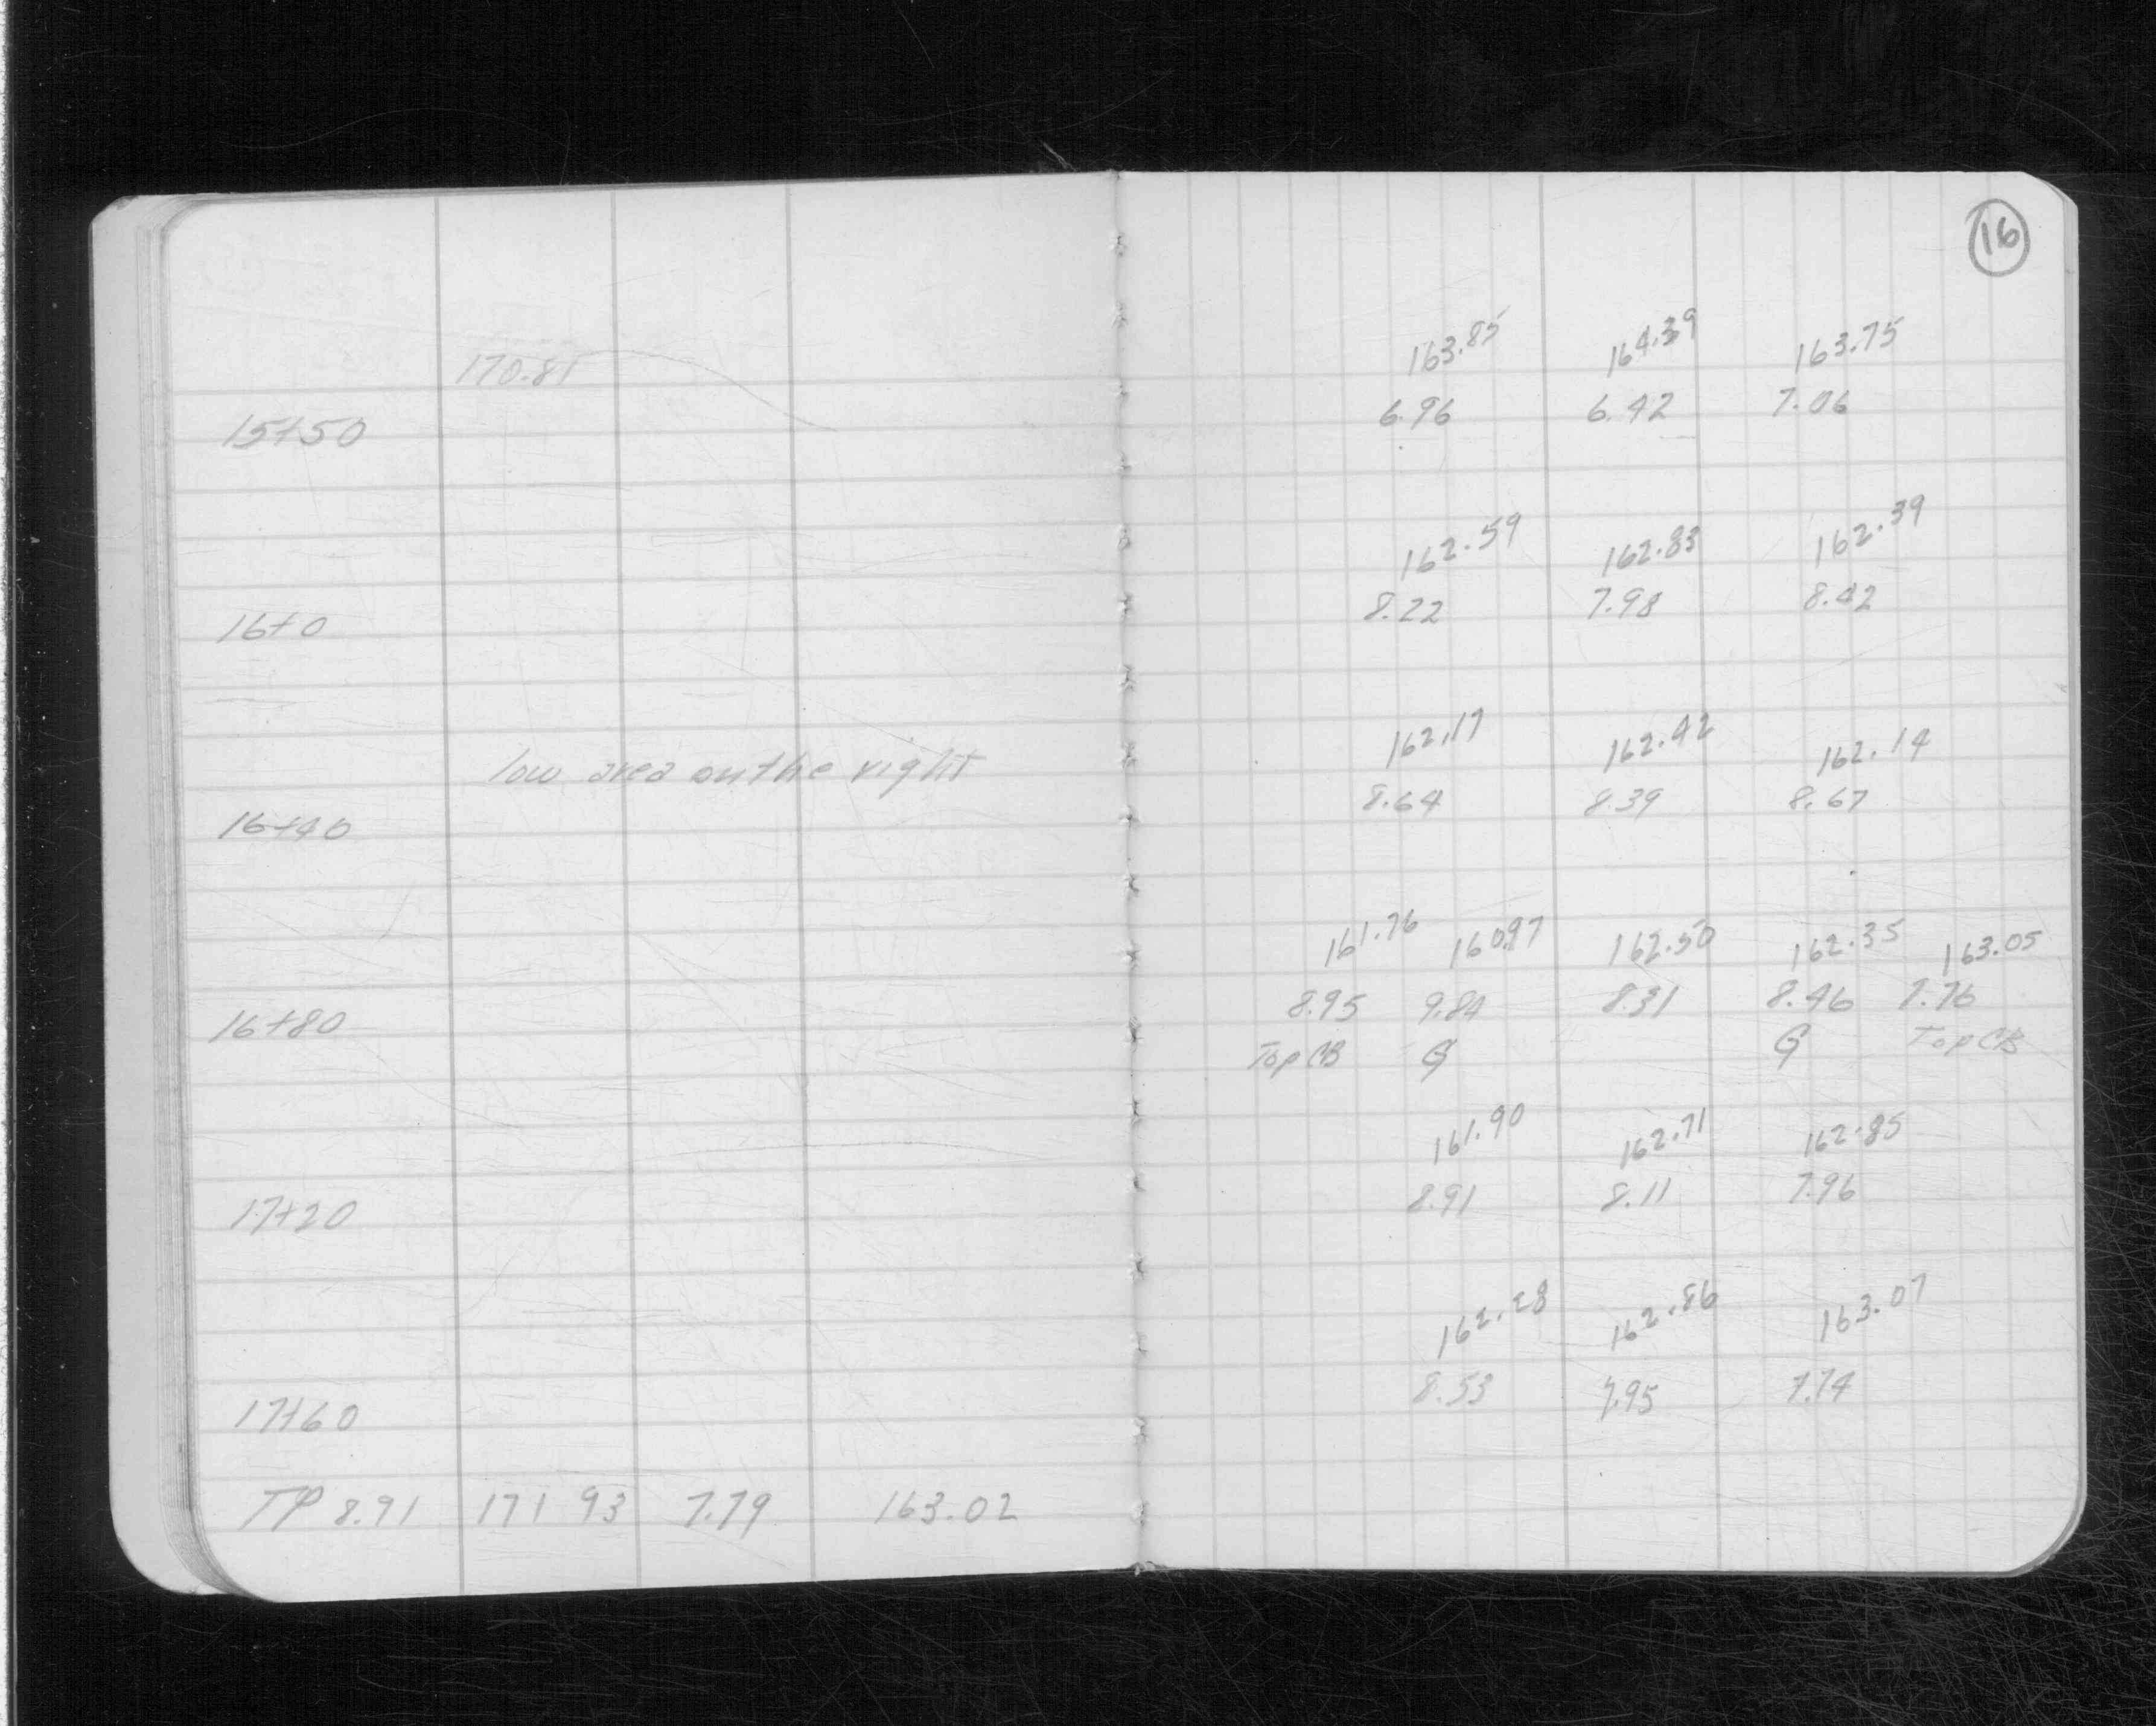 16
170.81
163.85 164.39 163.75
6.96 6.42 7.06
15+50
162.59 162.83 162.39
8.22 7.98 8.42
16+0
162.17 162.42 162.14
low area on the right
8.64 8.39 8.67
16+40
161.76 160.97 162.50 162.35 163.05
8.95 9.84 8.31 8.46 7.76
16+80
Top CB G G Top CB
161.90 162.71 162.85
8.91 8.11 7.96
17+20
162.28 162.86 163.07
8.53 7.95 7.74
17+60
TP 8.91 171 93 7.79 163.02